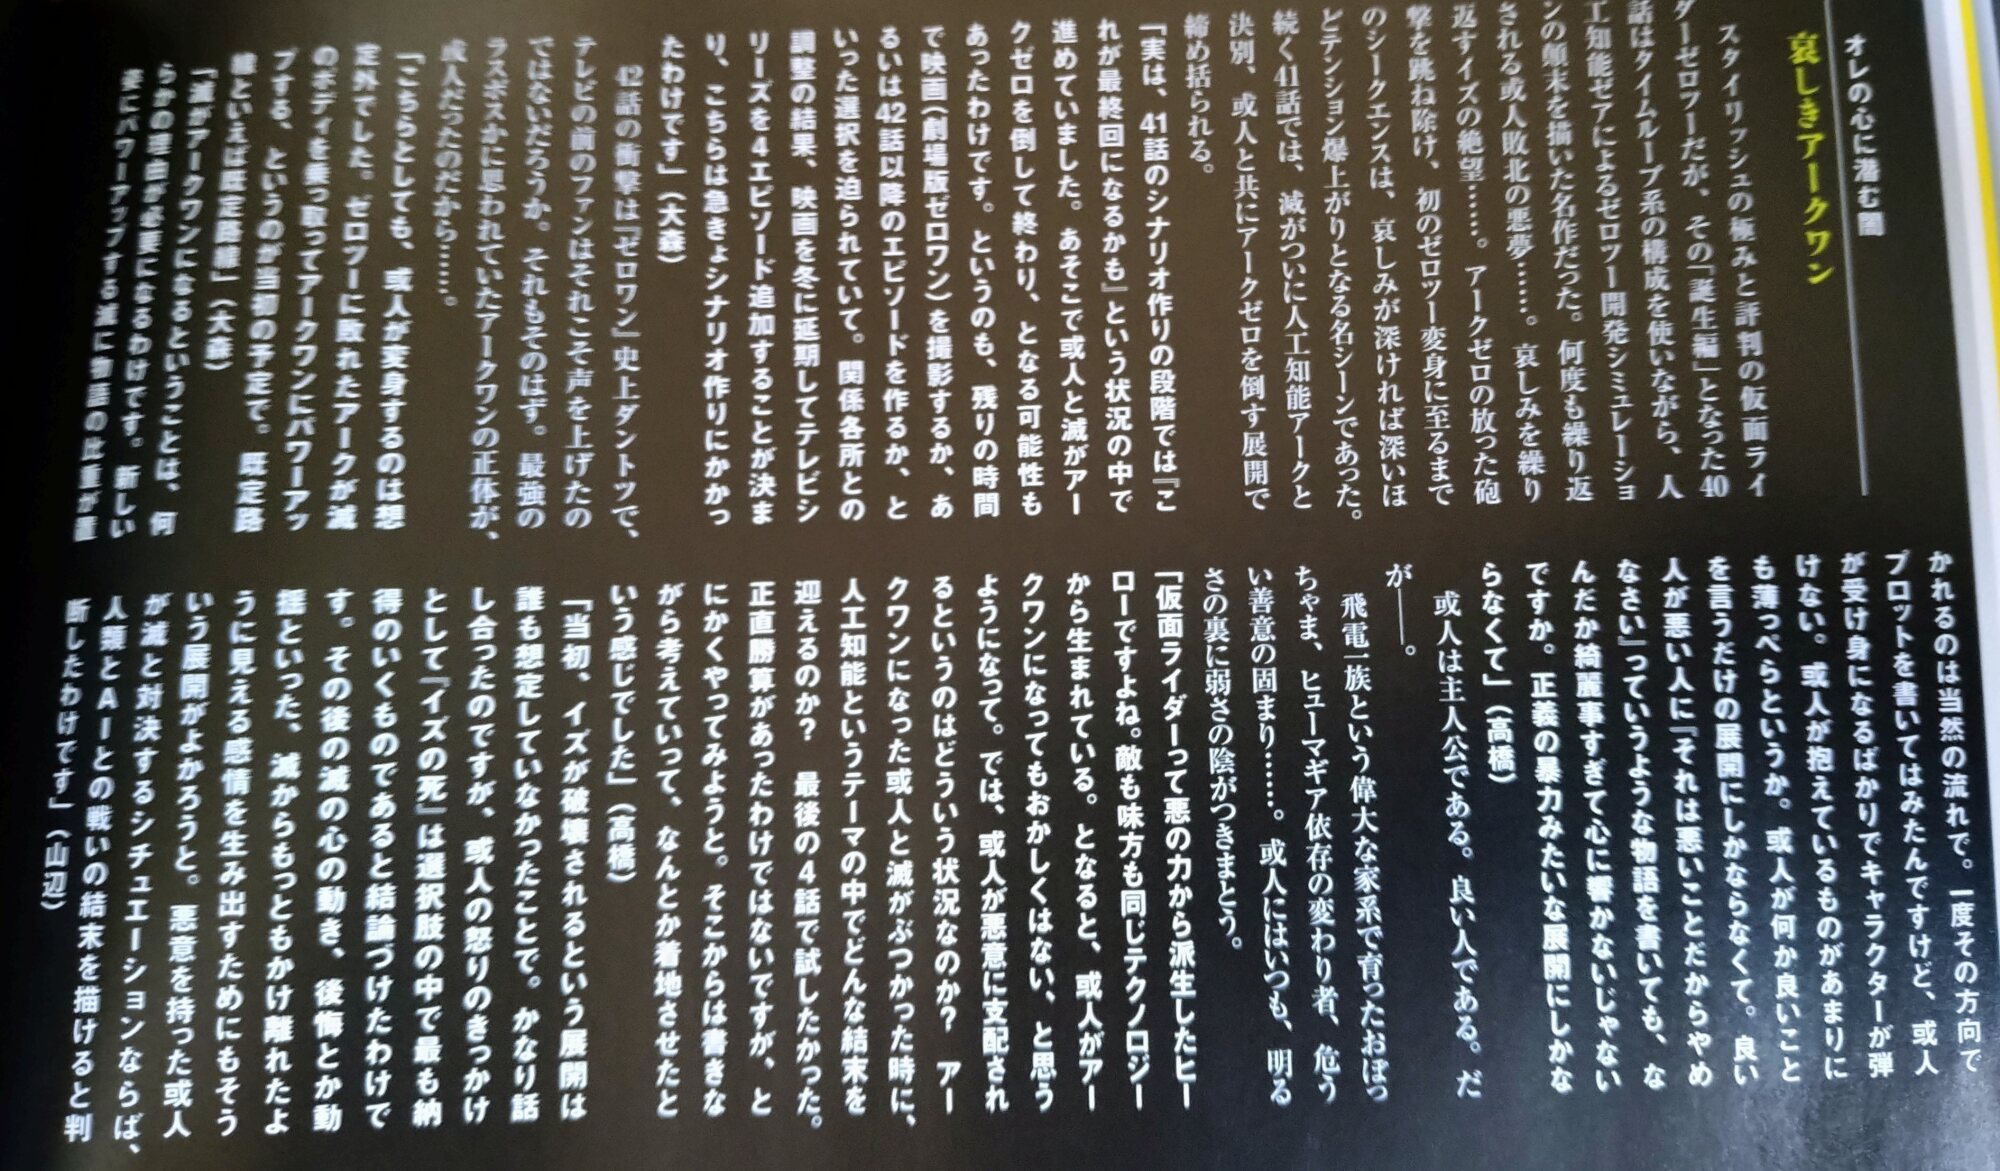 オレの心に潜む闇
哀しきアークワン
スタイリッシュの極みと評判の仮面ライ
ダーゼロツーだが、その「誕生編」となった40
話はタイムループ系の構成を使いながら、人
工知能ゼアによるゼロツー開発シミュレーショ
ンの顛末を描いた名作だった。何度も繰り返
される或人敗北の悪夢……。哀しみを繰り
返すイズの絶望……。アークゼロの放った砲
撃を跳ね除け、初のゼロツー変身に至るまで
のシークエンスは、哀しみが深ければ深いほ
どテンション爆上がりとなる名シーンであった。
続く41話では、滅がついに人工知能アークと
決別、或人と共にアークゼロを倒す展開で
締め括られる。
「実は、41話のシナリオ作りの段階では『こ
れが最終回になるかも』という状況の中で
進めていました。あそこで或人と滅がアー
クゼロを倒して終わり、となる可能性も
あったわけです。というのも、残りの時間
で映画(劇場版ゼロワン)を撮影するか、あ
るいは42話以降のエピソードを作るか、と
いった選択を迫られていて。関係各所との
調整の結果、映画を冬に延期してテレビシ
リーズを4エピソード追加することが決ま
り、こちらは急きょシナリオ作りにかかっ
たわけです」(大森)
42話の衝撃は『ゼロワン』史上ダントツで、
テレビの前のファンはそれこそ声を上げたの
ではないだろうか。それもそのはず。最強の
ラスボスかに思われていたアークワンの正体が、
或人だったのだから……。
「こちらとしても、或人が変身するのは想
定外でした。ゼロツーに敗れたアークが滅
のボディを乗っ取ってアークワンにパワーアッ
プする、というのが当初の予定で。既定路
線といえば既定路線」(大森)
「滅がアークワンになるということは、何
らかの理由が必要になるわけです。新しい
姿にパワーアップする滅に物語の比重が置
かれるのは当然の流れで。一度その方向で
プロットを書いてはみたんですけど、或人
が受け身になるばかりでキャラクターが弾
けない。或人が抱えているものがあまりに
も薄っぺらというか。或人が何か良いこと
を言うだけの展開にしかならなくて。良い
人が悪い人に「それは悪いことだからやめ
なさい」っていうような物語を書いても、な
んだか綺麗事すぎて心に響かないじゃない
ですか。正義の暴力みたいな展開にしかな
らなくて」(高橋)
或人は主人公である。良い人である。だ
が――。
飛電一族という偉大な家系で育ったおぼっ
ちゃま、ヒューマギア依存の変わり者、危う
い善意の固まり……。或人にはいつも、明る
さの裏に弱さの陰がつきまとう。
「仮面ライダーって悪の力から派生したヒー
ローですよね。敵も味方も同じテクノロジー
から生まれている。となると、或人がアー
クワンになってもおかしくはない、と思う
ようになって。では、或人が悪意に支配され
るというのはどういう状況なのか? アー
クワンになった或人と滅がぶつかった時に、
人工知能というテーマの中でどんな結末を
迎えるのか? 最後の4話で試したかった。
正直勝算があったわけではないですが、と
にかくやってみようと。そこからは書きな
がら考えていって、なんとか着地させたと
いう感じでした」(高橋)
「当初、イズが破壊されるという展開は
誰も想定していなかったことで。かなり話
し合ったのですが、或人の怒りのきっかけ
として『イズの死』は選択肢の中で最も納
得のいくものであると結論づけたわけで
す。その後の滅の心の動き、後悔とか動
揺といった、滅からもっともかけ離れたよ
うに見える感情を生み出すためにもそう
いう展開がよかろうと。悪意を持った或人
が滅と対決するシチュエーションならば、
人類とAIとの戦いの結末を描けると判
断したわけです」(山辺)